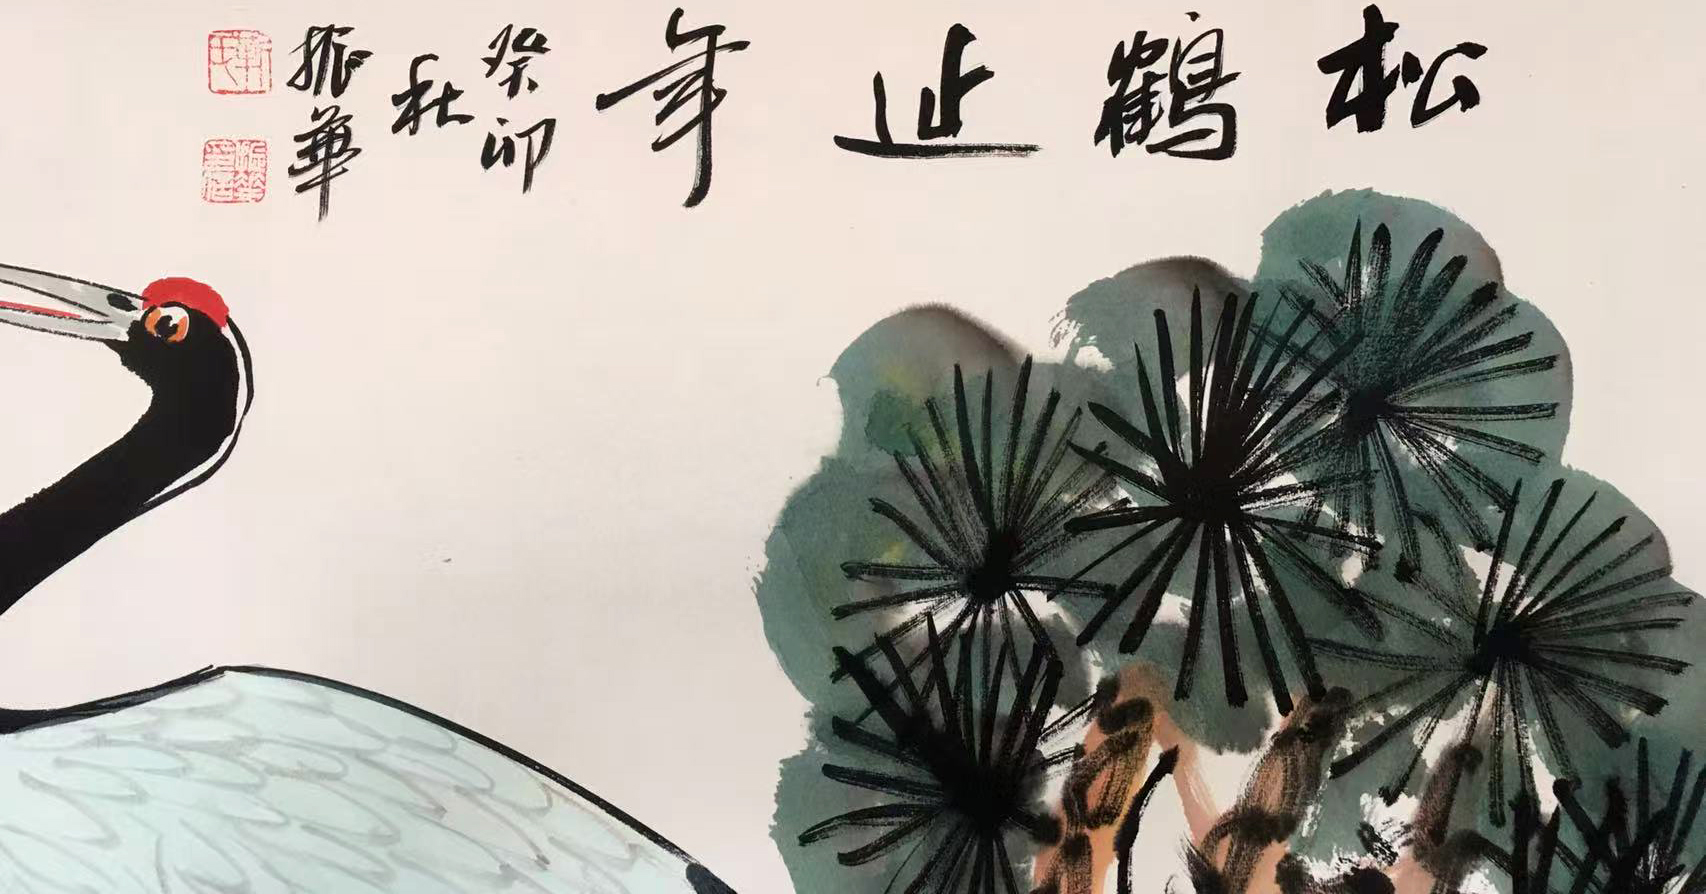 松鶴延年
癸卯
秋
振華